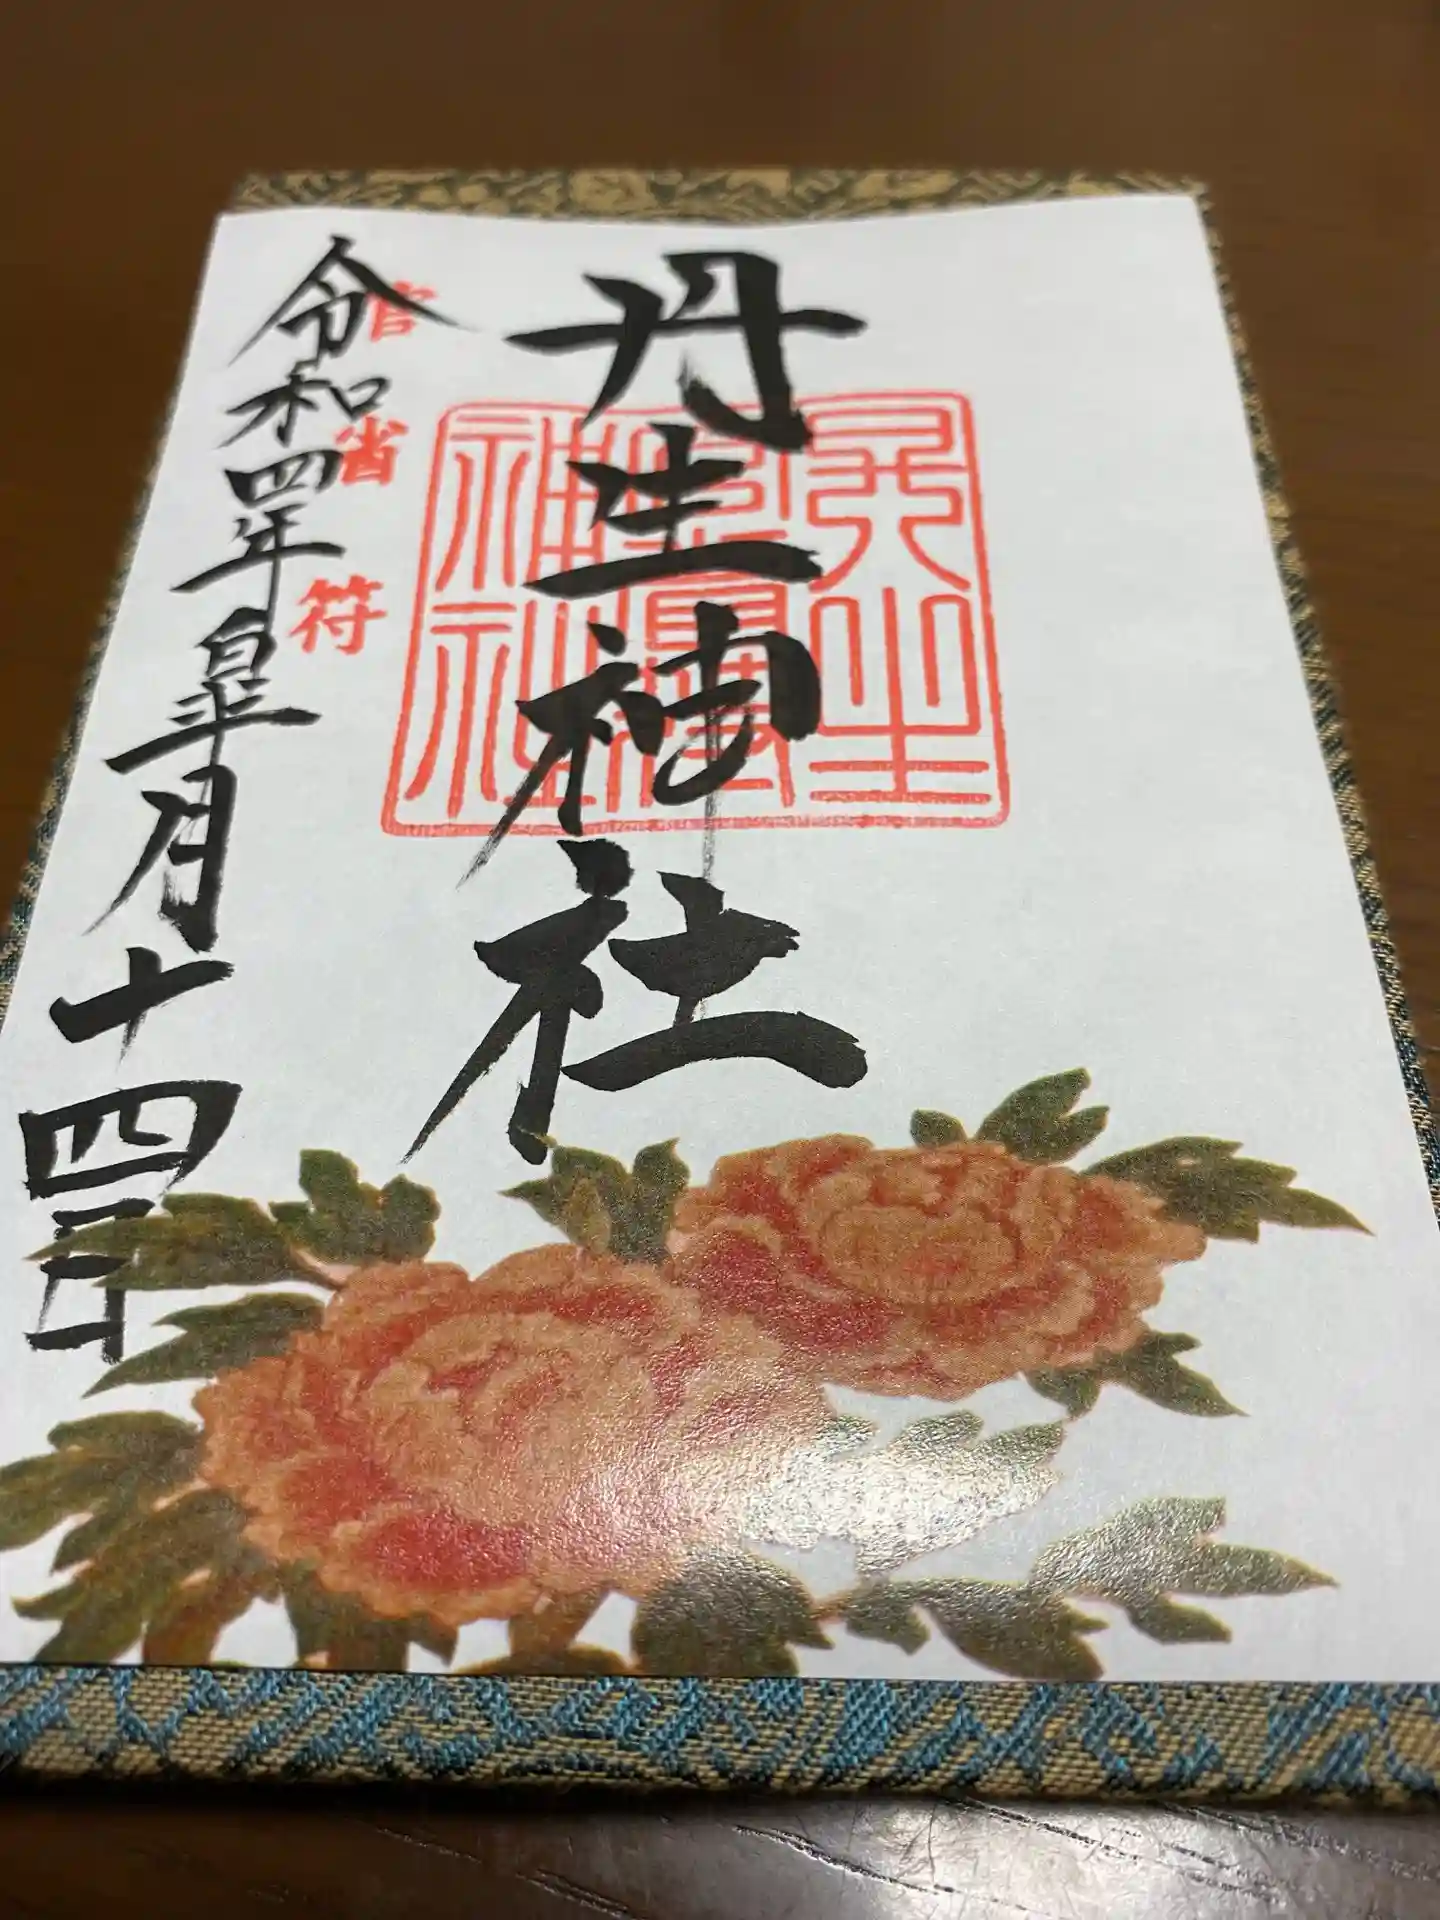 丹生
神社
丹生神社
官省符
令和四年皐月十四日